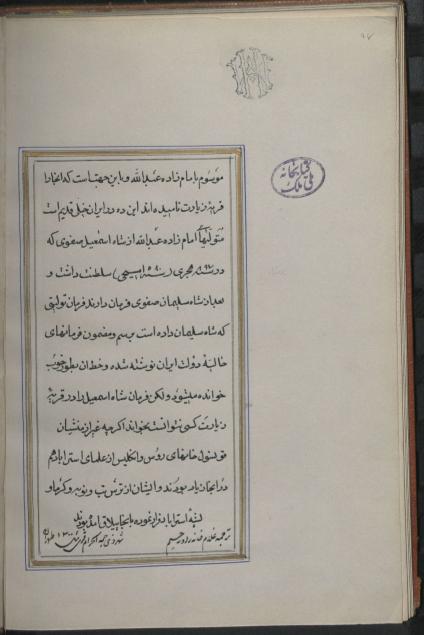 ۹۷
کتابخانه
ملی ملک
موسوم بامام زاده عبدالله و باین جهتست که انجارا
قریهٔ زیارت نامیده اند این ده در ایران خیلی قدیم است
متولیهای امام زاده عبدالله از شاه اسمعیل صفوی که
در سنه هجری (سنه مسیحی) سلطنت داشت و
بعد از شاه سلیمان صفوی فرمان دارند فرمان تولیتی
که شاه سلیمان داده است برسم و مضمون فرمانهای
حالیهٔ دولت ایران نوشته شده و خط آن بطور خوب
خوانده میشود و لکن فرمان شاه اسمعیل را در قریهٔ
زیارت کسی نتوانست بخواند اگرچه غیر از منشیان
قونسول خانهای روس و انگلیس از علمای استراباد هم
در آنجا زیاد بودند و ایشان از ترس تب و نوبه و گرما و
استراباد فرار نموده بانجا ییلاق آمده بودند
ترجمه غلام خانه زاد
شهر ذی حجه الحرام